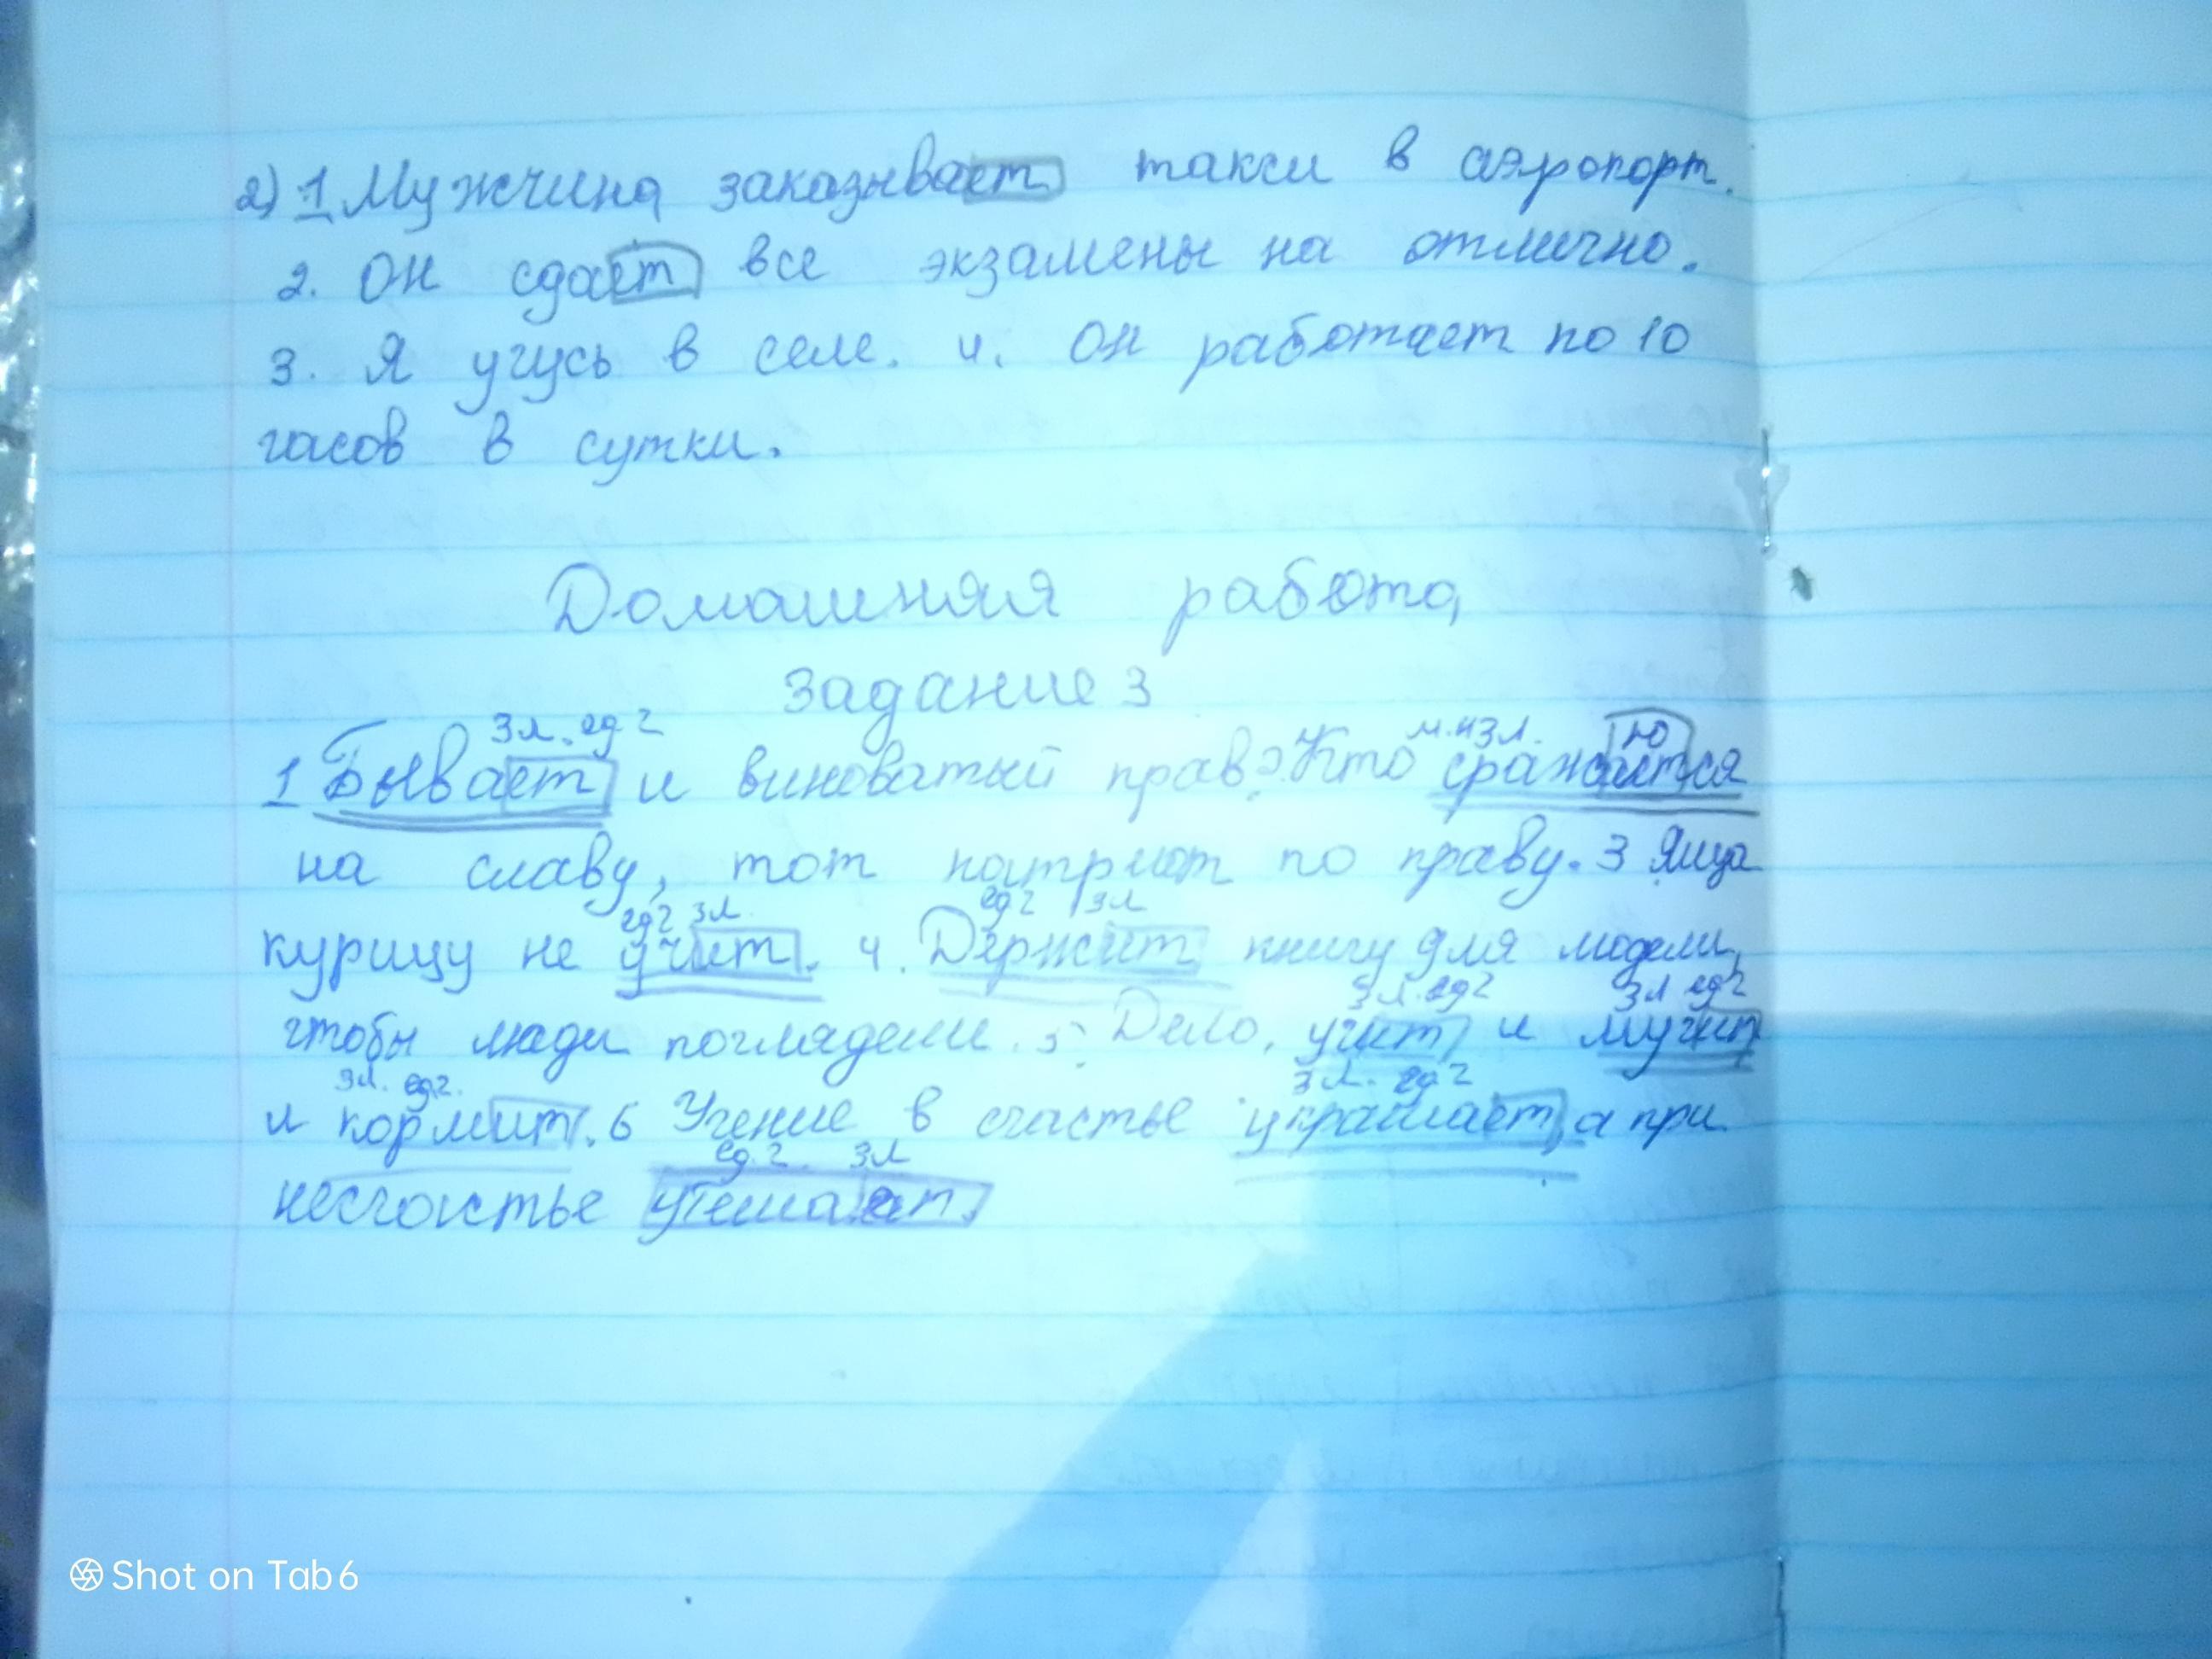 2) 1 Мужчина заказывает такси в аэропорт.
2. Он сдаёт все экзамены на отлично.
3. Я учусь в селе. 4. Он работает по 10
часов в сутки.
Домашняя работа
задание 3
3л. ед ч м.ч 3л. ю
1 Бывает и виноватый прав. 2. Кто сражается
на славу, тот патриот по праву. 3 Яица
ед ч 3л. ед ч 3л
курицу не учит. 4. Держит книгу для модели,
3л. ед ч 3л ед ч
чтобы люди поглядели. 5. Дело, учит и мучит
3л. ед.ч. 3л. ед ч
и кормит. 6 Учение в счастье украшает, а при
ед.ч. 3л
несчастье утешает.
Shot on Tab6